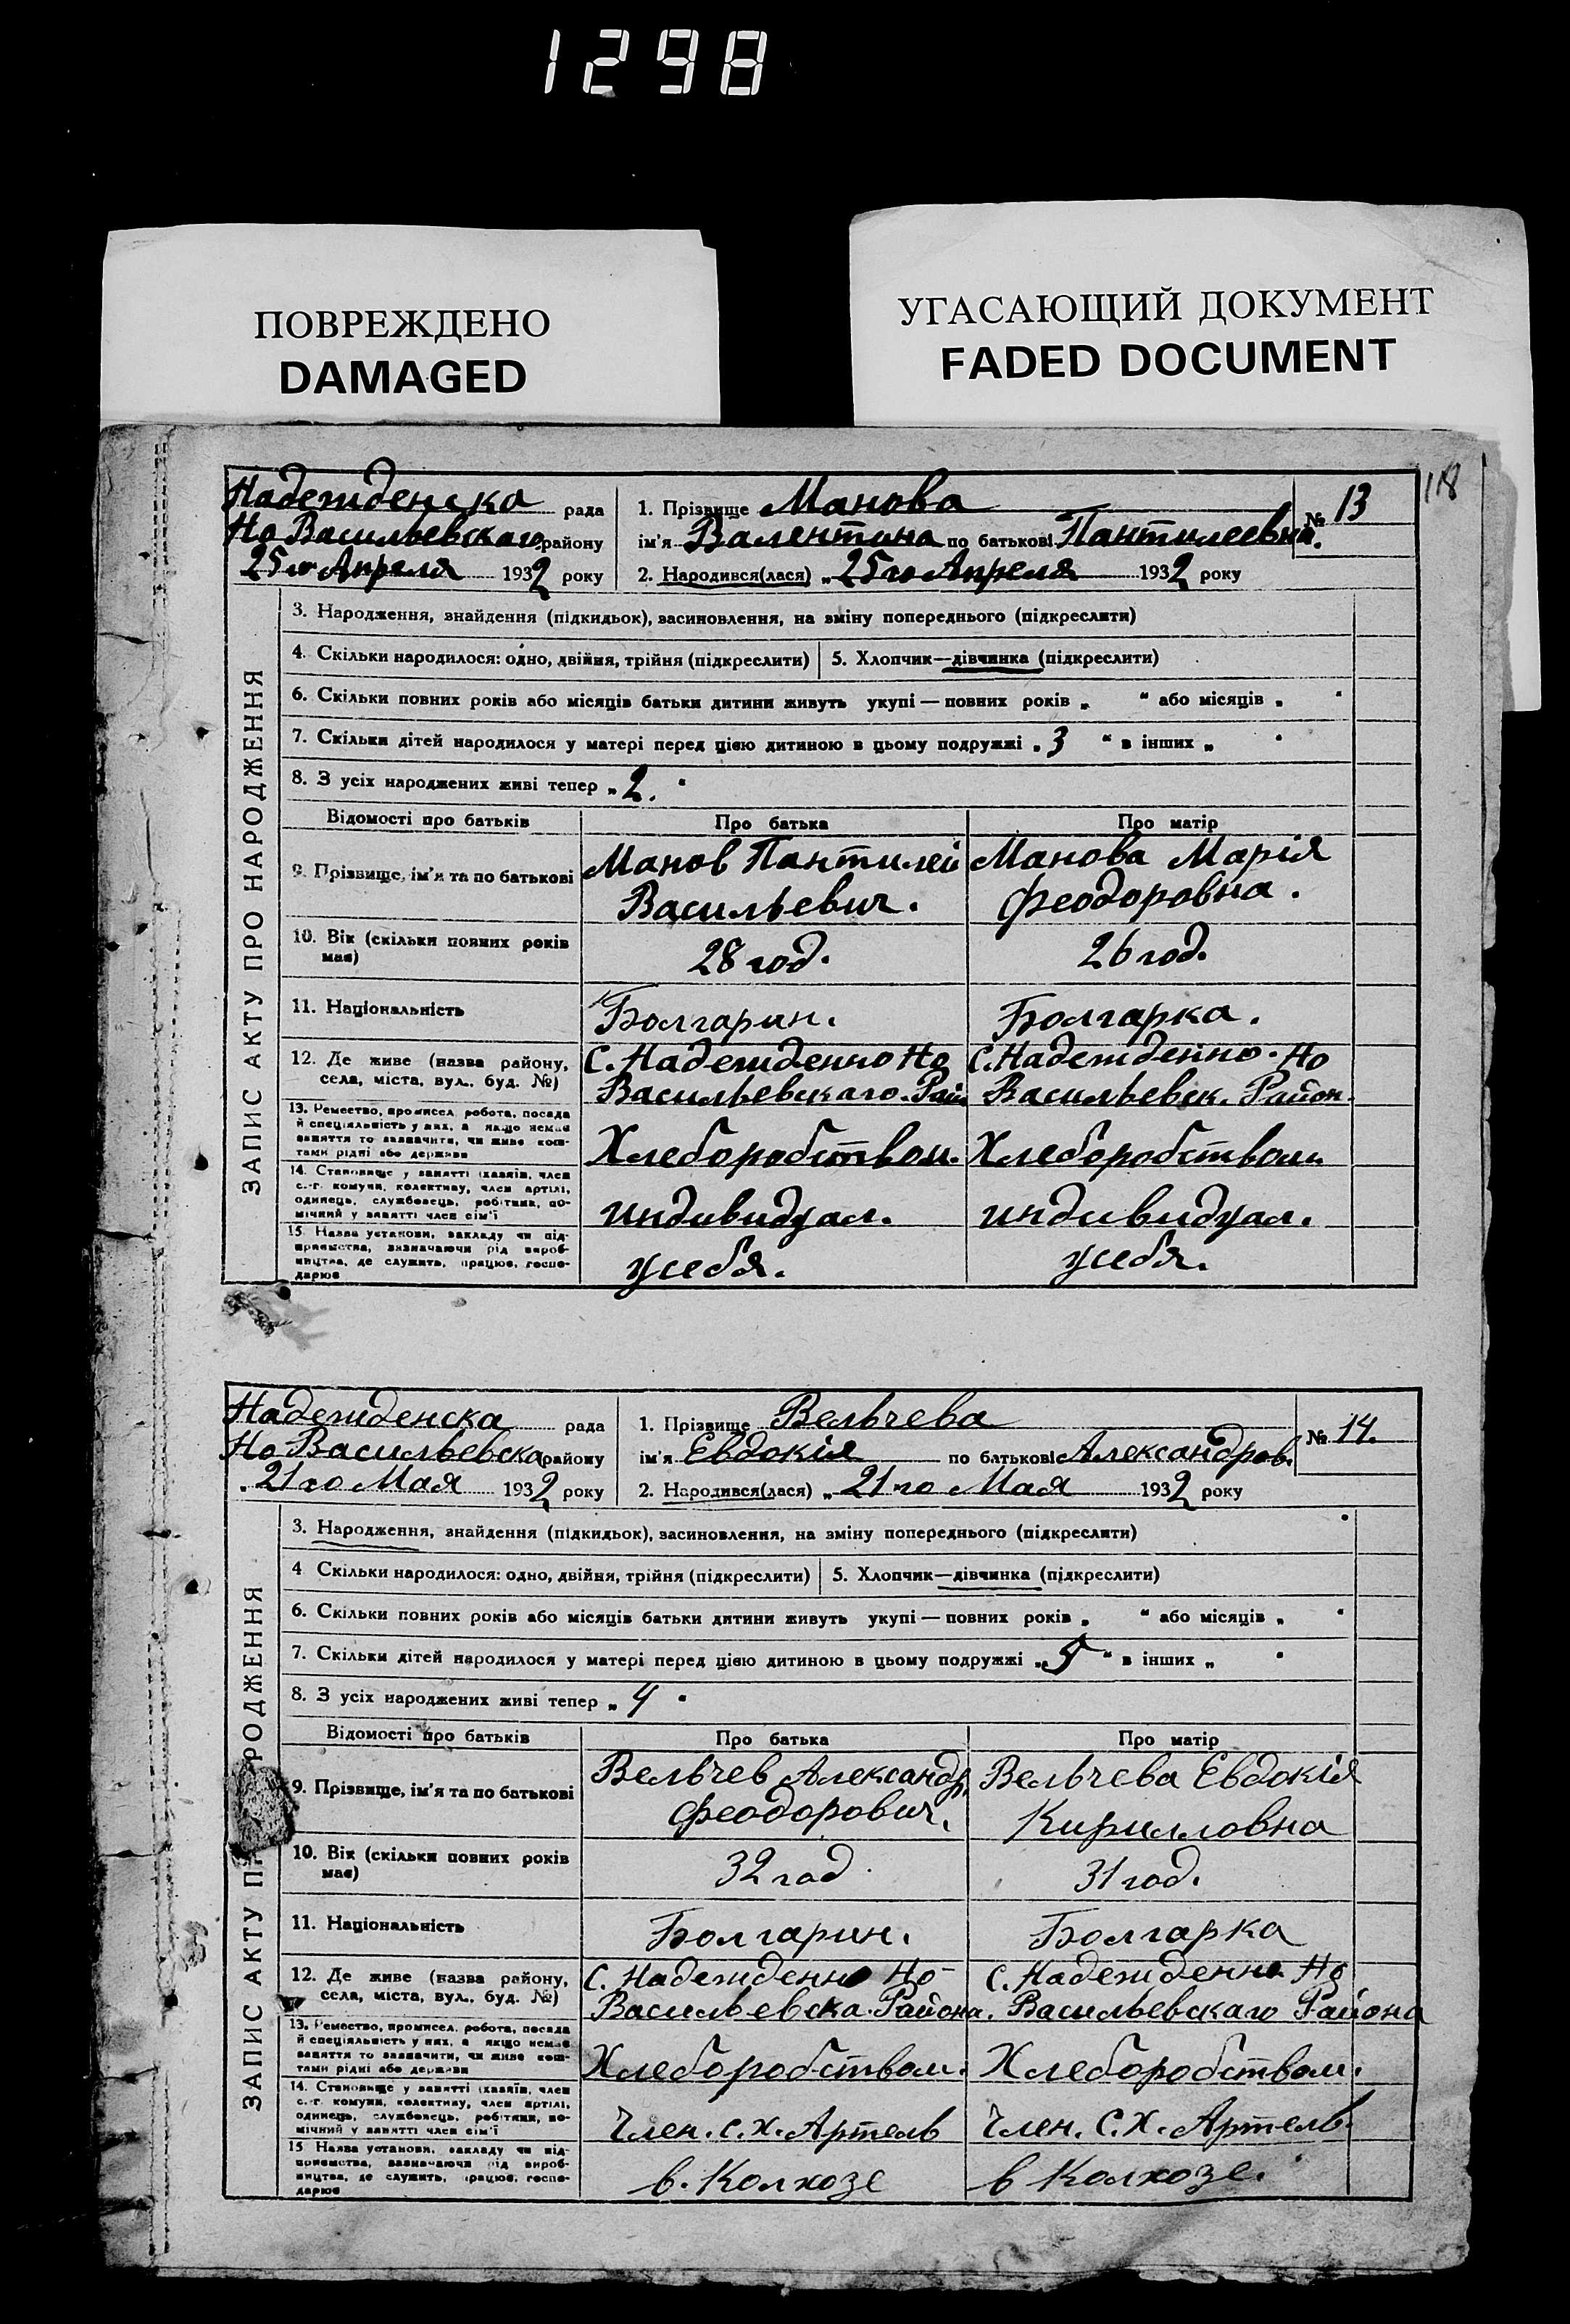 1298
ПОВРЕЖДЕНО
DAMAGED
УГАСАЮЩИЙ ДОКУМЕНТ
FADED DOCUMENT
118
Надежденска рада
Но Васильевскаго району
25го Апреля 1932 року
1. Прізвище Манова
ім'я Валентина по батькові Пантилеевна.
2. Народився(лася) „25го Апреля 1932 року
№ 13
ЗАПИС АКТУ ПРО НАРОДЖЕННЯ
3. Народження, знайдення (підкидьок), засиновлення, на зміну попереднього (підкреслити)
4. Скільки народилося: одно, двійня, трійня (підкреслити) 5. Хлопчик—дівчинка (підкреслити)
6. Скільки повних років або місяців батьки дитини живуть укупі — повних років „ “ або місяців „ “
7. Скільки дітей народилося у матері перед цією дитиною в цьому подружжі „3 “ в інших „ “
8. З усіх народжених живі тепер „2. “
Відомості про батьків Про батька Про матір
9. Прізвище, ім'я та по батькові
Манов Пантилей
Васильевич.
Манова Марія
Феодоровна.
10. Вік (скільки повних років
має)
28 год.
26 год.
11. Національність
Болгарин.
Болгарка.
12. Де живе (назва району,
села, міста, вул., буд. №)
С. Надежденно Но
Васильевскаго. Рай
С. Надежденно. Но
Васильевск. Район.
13. Ремество, промисел, робота, посада
й спеціяльність у них, а якщо немає
заняття то зазначити, чи живе кош-
тами рідні або держави
Хлеборобством.
Хлеборобством.
14. Становище у занятті (хазяїн, член
с.-г. комуни, колективу, член артілі,
одинець, службовець, робітник, по-
мічний у занятті член сім'ї
индивидуал.
индивидуал.
15. Назва установи, закладу чи під-
приємства, зазначаючи рід вироб-
ництва, де служить, працює, госпо-
дарює
у себя.
у себя.
Надежденска рада
Но-Васильевска району
21го Мая 1932 року
1. Прізвище Вельчева
ім'я Евдокія по батькові Александров.
2. Народився(лася) „21го Мая 1932 року
№ 14.
ЗАПИС АКТУ ПР РОДЖЕННЯ
3. Народження, знайдення (підкидьок), засиновлення, на зміну попереднього (підкреслити)
4 Скільки народилося: одно, двійня, трійня (підкреслити) 5. Хлопчик—дівчинка (підкреслити)
6. Скільки повних років або місяців батьки дитини живуть укупі — повних років „ “ або місяців „ “
7. Скільки дітей народилося у матері перед цією дитиною в цьому подружжі „5 “ в інших „ “
8. З усіх народжених живі тепер „4 “
Відомості про батьків Про батька Про матір
9. Прізвище, ім'я та по батькові
Вельчев Александр
Феодорович.
Вельчева Евдокія
Кирилловна
10. Вік (скільки повних років
має)
32 год
31 год.
11. Національність
Болгарин.
Болгарка
12. Де живе (назва району,
села, міста, вул., буд. №)
С. Надежденно Но-
Васильевска. Района.
С. Надежденно Но
Васильевскаго Района
13. Ремество, промисел, робота, посада
й спеціяльність у них, а якщо немає
заняття то зазначити, чи живе кош-
тами рідні або держави
Хлеборобством.
Хлеборобством.
14. Становище у занятті (хазяїн, член
с.-г. комуни, колективу, член артілі,
одинець, службовець, робітник, по-
мічний у занятті член сім'ї
Член. с. х. Артель
Член. С. Х. Артель.
15 Назва установи, закладу чи під-
приємства, зазначаючи рід вироб-
ництва, де служить, працює, госпо-
дарює
в. Колхозе
в Колхозе.